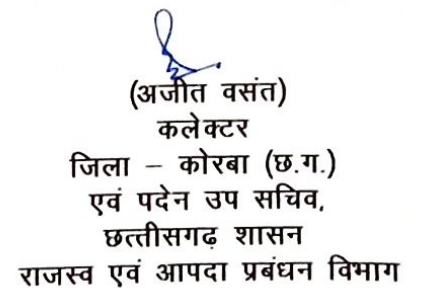 (अजीत वसंत)
कलेक्टर
जिला – कोरबा (छ.ग.)
एवं पदेन उप सचिव,
छत्तीसगढ़ शासन
राजस्व एवं आपदा प्रबंधन विभाग